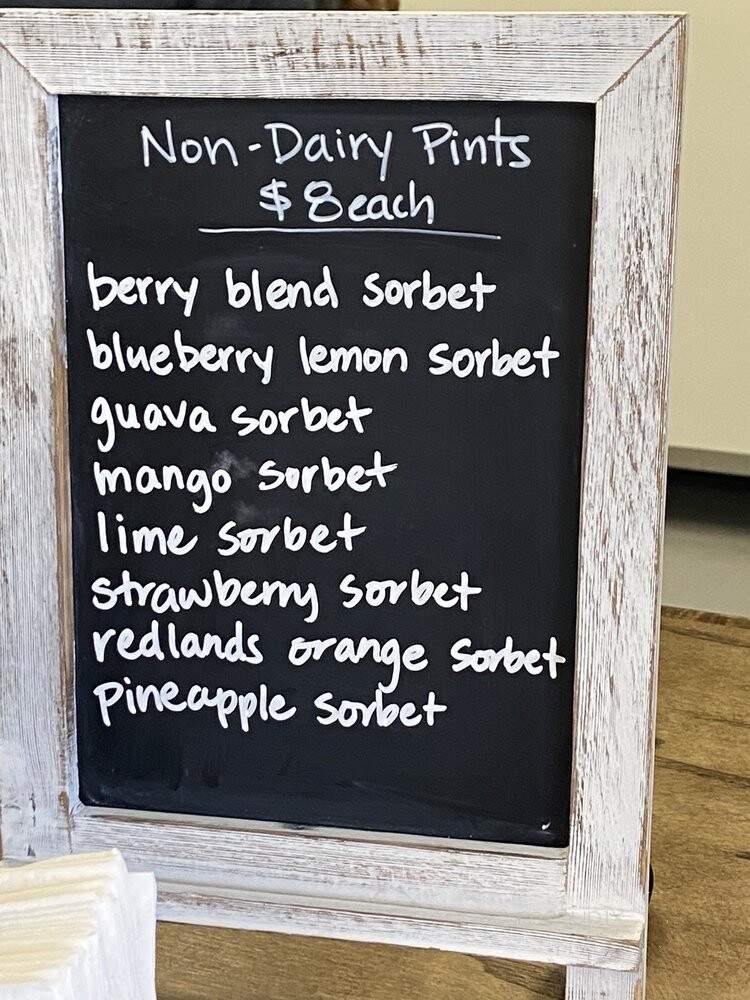 Non-Dairy Pints
$8 each
berry blend sorbet
blueberry lemon sorbet
guava sorbet
mango sorbet
lime sorbet
strawberry sorbet
redlands orange sorbet
pineapple sorbet